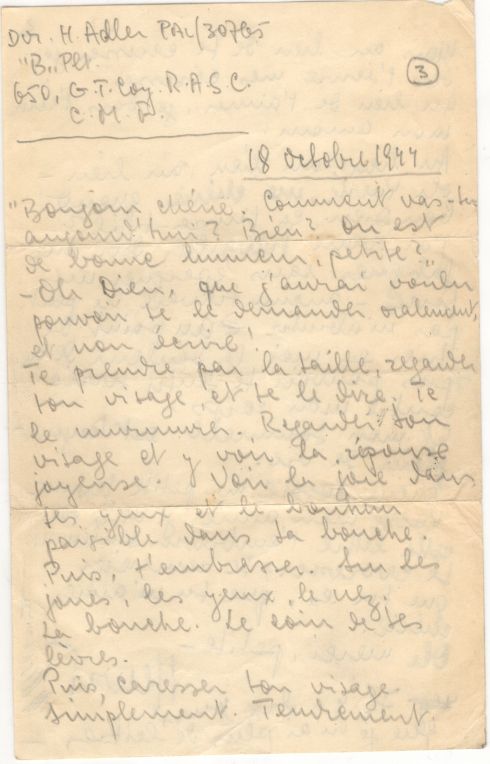 Dvr. H. Adler PAL/30765
"B" Plt.
650. G.T. Coy. R.A.S.C.
C.M.F.
3
18 octobre 1944
"Bonjour chérie. Comment vas-tu
aujourd'hui? Bien? On est
de bonne humeur, petite?"
- Oh Dieu, que j'aurai voulu
pouvoir te le demander oralement,
et non écrire,
Te prendre par la taille, regarder
ton visage et te le dire. Te
le murmurer. Regarder ton
visage et y voir la réponse
joyeuse. Voir la joie dans
tes yeux et le bonheur
paisible dans ta bouche.
Puis, t'embrasser. Sur les
joues, les yeux, le nez.
La bouche. Le coin de tes
lèvres.
Puis, caresser ton visage
simplement. Tendrement.